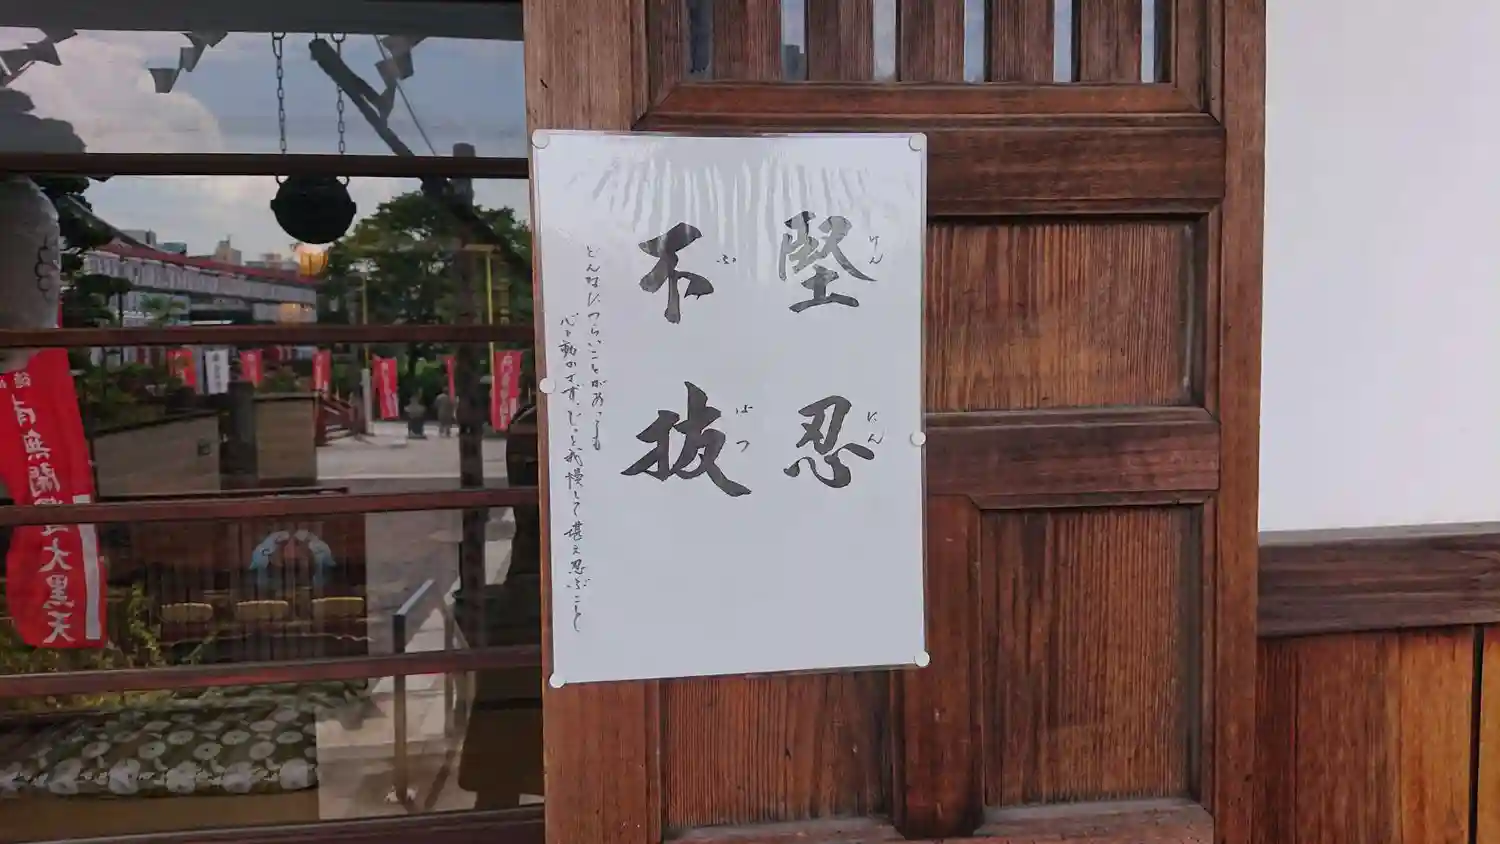 堅忍
けんにん
不抜
ふばつ
どんなにつらいことがあっても
心を動かさず、じっと我慢して堪え忍ぶこと
大黒天